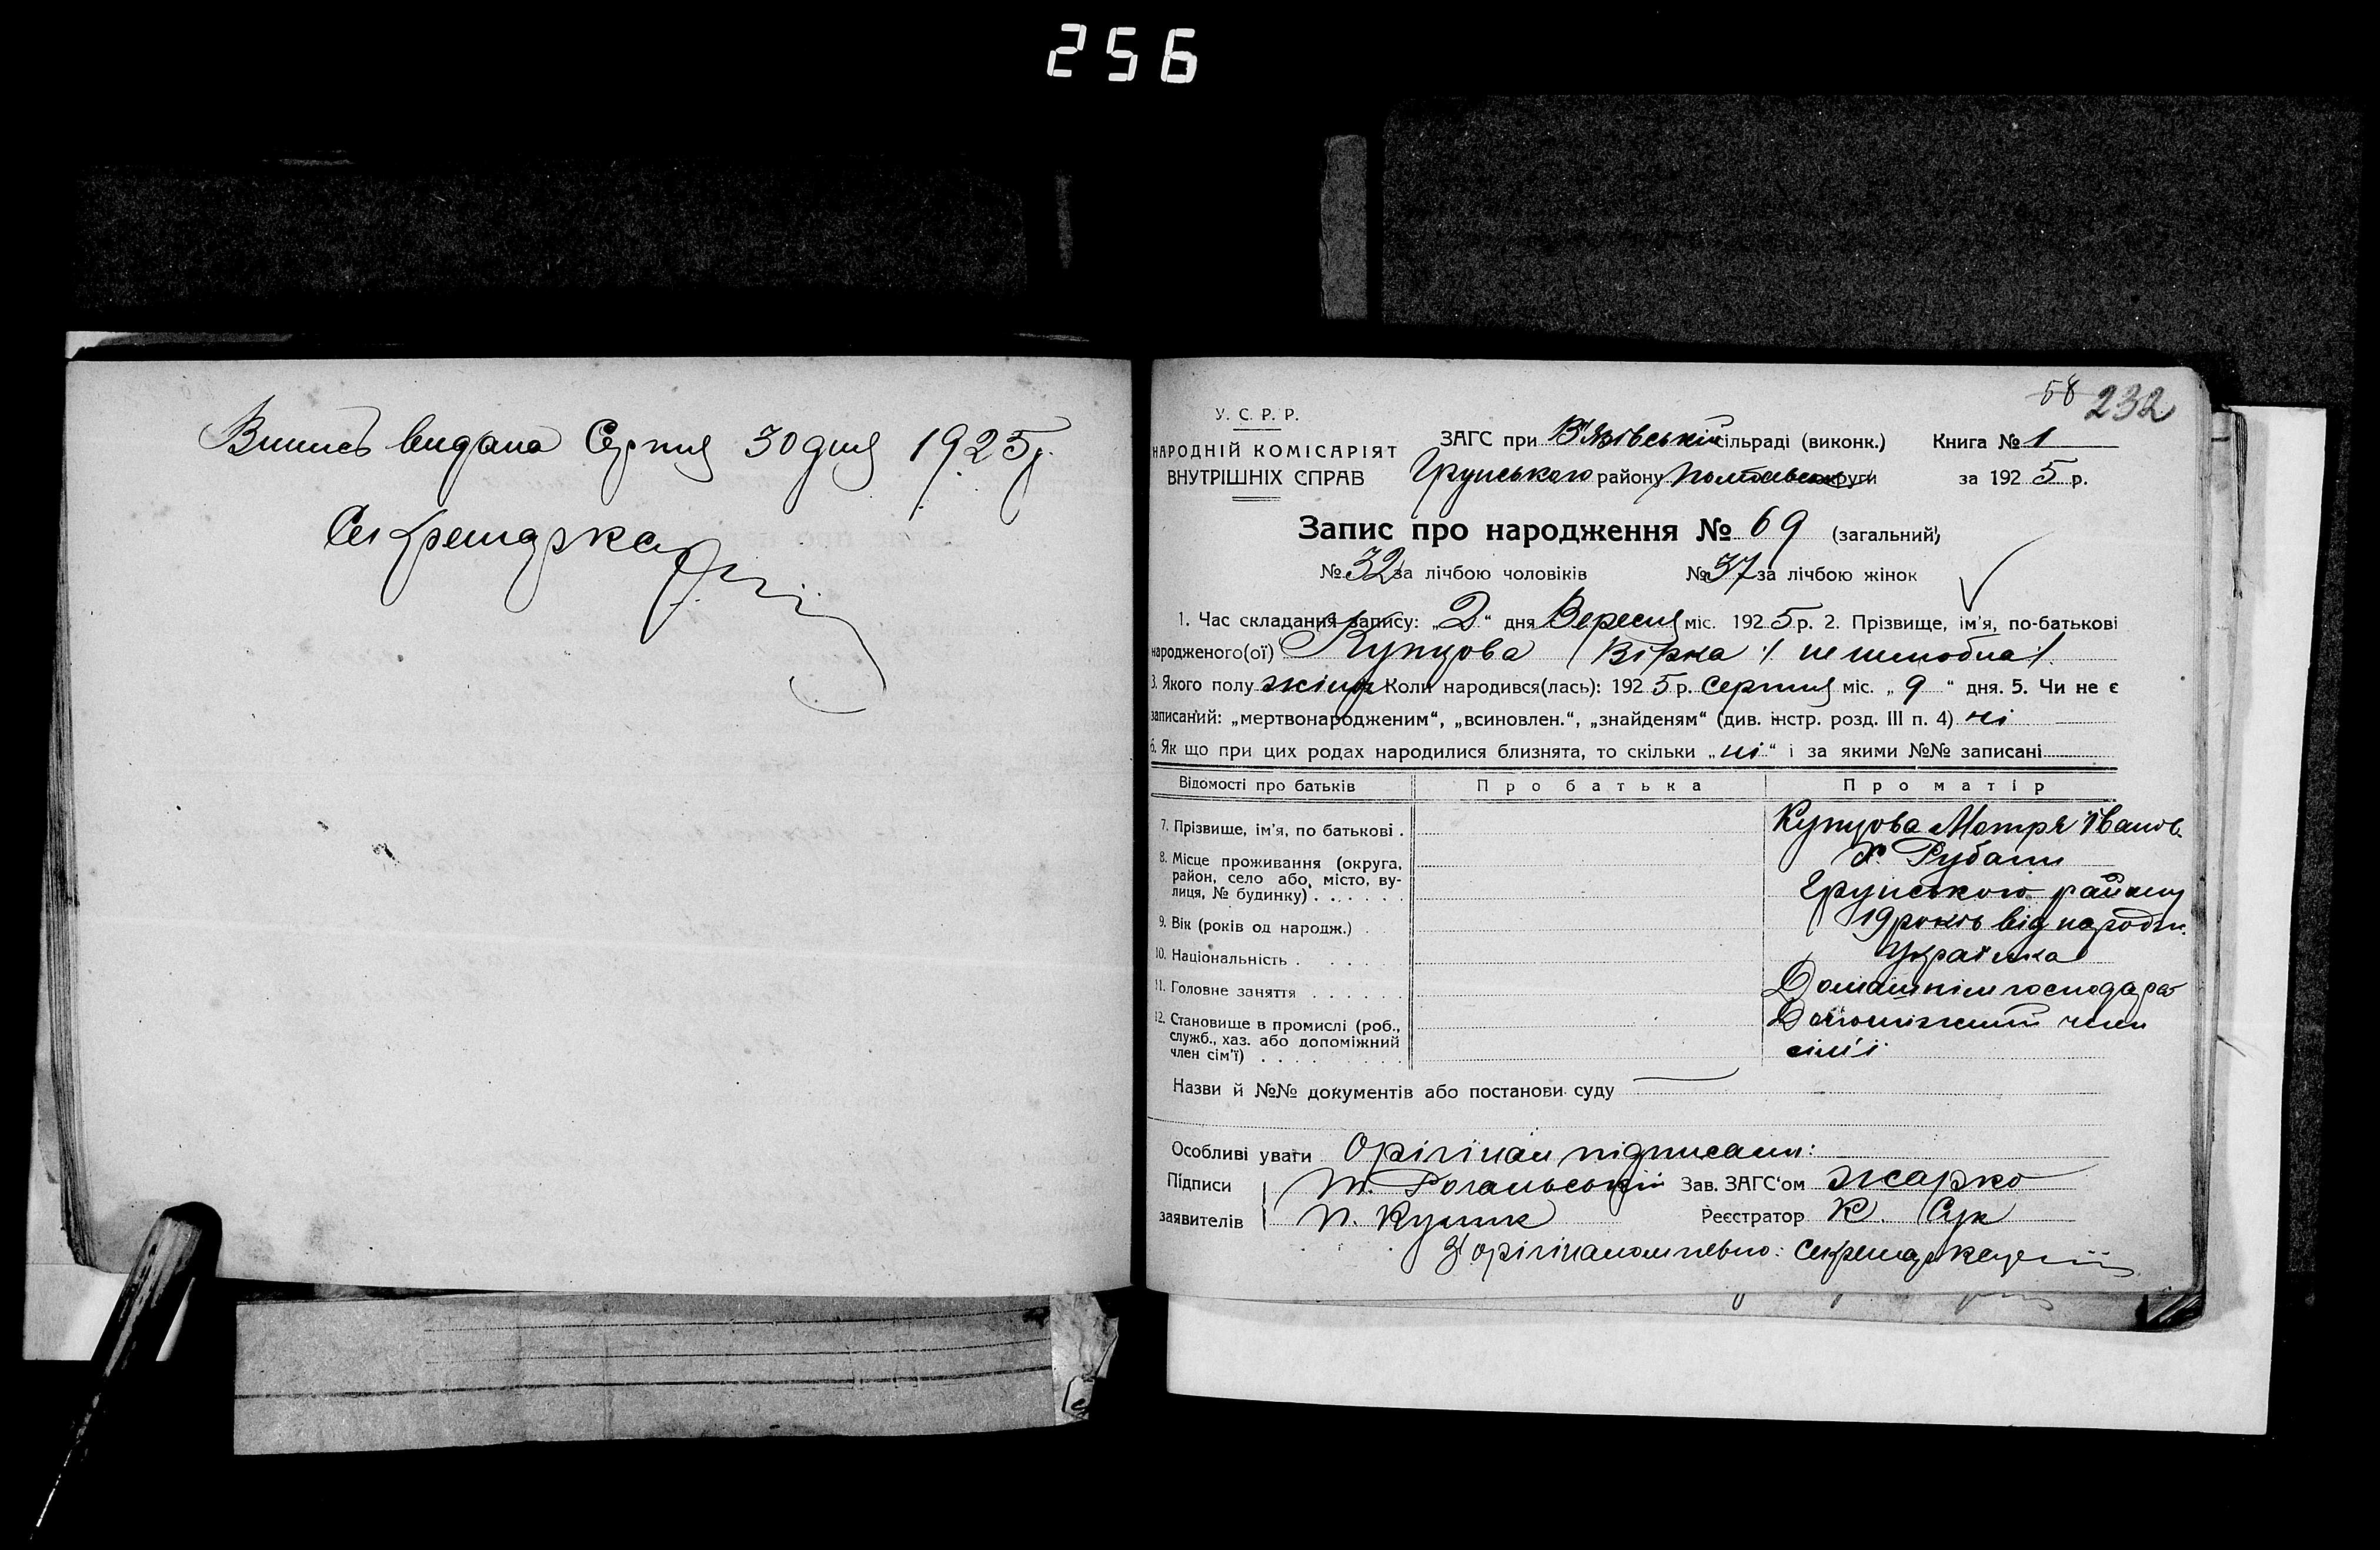 256
Випись видана Серпня 30 дня 1925 р.
Секретарка
58 232
У. С. Р. Р.
НАРОДНІЙ КОМІСАРІЯТ
ВНУТРІШНІХ СПРАВ
ЗАГС при В'язівській сільраді (виконк.) Книга № 1
Грунського району Полтавськ округи за 1925 р.
Запис про народження № 69 (загальний)
№ 32 за лічбою чоловіків № 37 за лічбою жінок
1. Час складання запису: „2" дня Вересня міс. 1925 р. 2. Прізвище, ім'я, по-батькові
народженого(ої) Купцова Вірка / нешлюбна /
3. Якого полу жіноч Коли народився(лась): 1925 р. Серпня міс. „9" дня. 5. Чи не є
записаний: „мертвонародженим", „всиновлен.", „знайденям" (див. інстр. розд. III п. 4) ні
6. Як що при цих родах народилися близнята, то скільки „ні" і за якими №№ записані
Відомості про батьків Про батька Про матір
7. Прізвище, ім'я, по батькові . Купцова Мотря Іванов.
8. Місце проживання (округа, район, село або місто, вулиця, № будинку) . . . . . . Х. Рубани
Грунського району
9. Вік (років од народж.) . 19 років від народж.
10. Національність . . . . Українка
11. Головне заняття . . . . . . Домашнім господар
12. Становище в промислі (роб., служб., хаз. або допоміжний член сім'ї) . . . . . . . . Допоміжний член
сім'ї
Назви й №№ документів або постанови суду
Особливі уваги Орігінал підписали:
Підписи Т. Рогальський Зав. ЗАГС'ом Жарко
заявителів П. Кулик Реєстратор К. Сук
З орігіналом певно: Секретарка